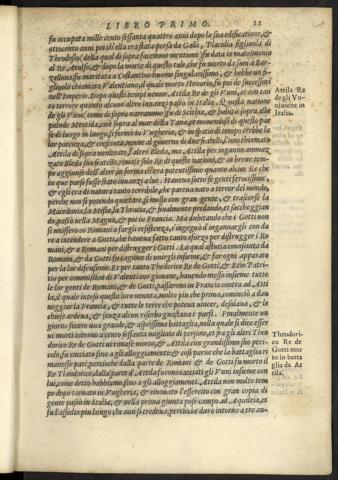 LIBRO PRIMO. 11
fu occupata mille cento sessanta quattro anni dopo la sua edificatione, &
ottocento anni poi ch'ella era stata presa da Galli, Placidia figliuola di
Theodosio, della qual di sopra facemmo mentione, fu data in matrimonio
al Re Ataulfo, & dopo la morte di questo tale, che fu morto da suoi a Bar-
zellona, fu maritata a Costantino huomo singularissimo, & hebbe un fi-
gliuolo chiamato Valentiniano, il quale morto Honorio, fu poi de successori
nell'Imperio. Dopo questi tempi venne, Attila, Re de gli Vnni, et con tan
to terrore quanto alcuno altro innanzi passò in Italia. Questa natione
de gli Vnni, come di sopra narrammo fu di Scithia, & habitò sopra alla
palude Meotida, cioè sopra al mar della Tana, et movendosi di questo pae
se di luogo in luogo, si fermò in Vngheria, & in spatio di tempo crebbe la
lor potenza, & crescuta, venne al governo di due fratelli, l'uno chiamato
Attila di sopra nominato, l'altro Bleda, ma Attila per inganni ammaz
zato Bleda suo fratello, rimase solo Re di quelle nationi, & in breve tempo
aggiunse dell'altre in forma ch'era potentissimo quanto alcun Re che
in que paesi fusse stato innanzi a lui. Haueua sotto se genti ferocissime,
& egli era di natura tanto terribile, che pareua nato a terror del mondo,
perche non si potendo quietare, si mosse con gran gente, & trascorse la
Macedonia, la Misia, la Thracia, & finalmente predando, et saccheggian
do passò nella Magna, & poi in Francia. Ma dubitando che i Gotti non
si unissero co Romani a fargli resistenza, s'ingegnò d'ingannargli con da
re a intendere a Gotti, che haueua fatto tanto sforzo per distrugger i Ro
mani, & a Romani per distrugger i Gotti. La qual astutia conosciuta da
Romani, & da Gotti fu cagione di unirgli insieme, & far ogni apparato
per la lor difensione. Et per tanto Theodorico Re de Gotti, & Etio Patri-
tio per commissione di Valentiniano giovane, hauendo messo insieme tutte
le lor genti de Romani, & de Gotti, passarono in Francia contra ad Atti
la, il quale intesa questa loro uenuta, molto piu che prima, cominciò a dan
neggiar la Francia, & tutte le terre che poteua uincer, desolaua, & le
chiese ardeua, & senza alcun riserbo guastaua i paesi. Finalmente un
giorno fecero una grande, & asprissima battaglia, nella quale si dice esser
ui morti intorno a cento sessanta migliaia di persone, et tra gli altri Theo
dorico Re de Gotti ui rimase morto, & Attila con grandissimo suo peri-
colo, fu cacciato sino a gli alloggiamenti; & così parue che la battaglia ri
manesse pari, percioche dalla parte de Romani & de Gotti fu morto il
Re Theodorico, dalla parte d'Attila furono cacciati gli Vnni insieme con
lui, come detto habbiamo, sino a gli alloggiamenti. Attila non molto tem
po dopo tornato in Vngheria, & rinouato l'essercito con gran copia di
gente passò in Italia, & nella prima giunta pose campo ad Aquileia, et
fu l'assedio piu lungo, che non si credeua, percioche durò intorno a tre an-
Attila Re
de gli Vn-
ni uiene in
Italia.
Theodori-
co Re de
Gotti mor
to in batta
glia da At
tila.